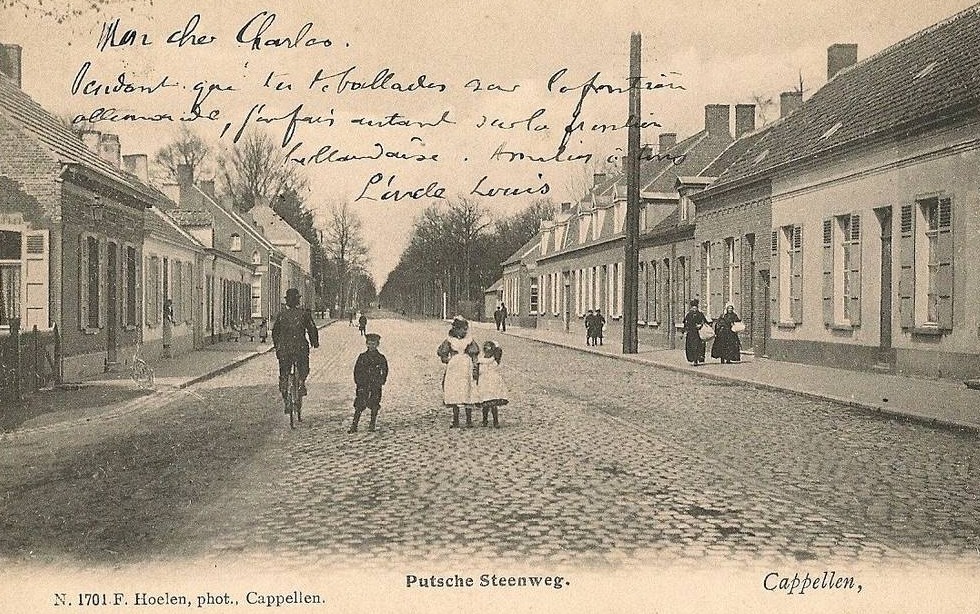 Mon cher Charles.
Pendant que tu t'ballades sur la frontière
allemande, j'en fais autant sur la frontière
hollandaise. Amitiés à tous
Louis
Putsche Steenweg.
Cappellen,
N. 1701 F. Hoelen, phot., Cappellen.